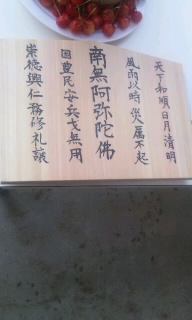 天下和順日月清明
風雨以時災厲不起
南無阿弥陀佛
国豊民安兵戈無用
崇徳興仁務修礼譲